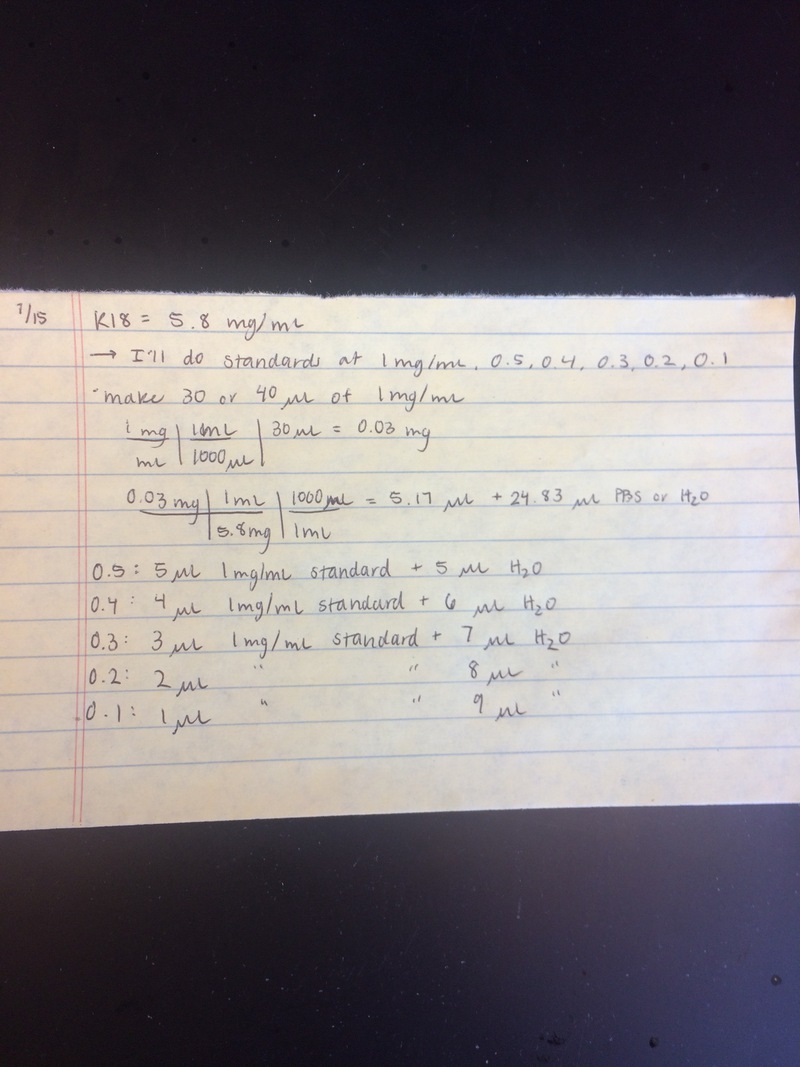 7/15 K18 = 5.8 mg/mL
→ I'll do standards at 1mg/mL, 0.5, 0.4, 0.3, 0.2, 0.1
·make 30 or 40 μL of 1mg/mL
1 mg | 1mL | 30 μL = 0.03 mg
mL | 1000 μL |
0.03 mg | 1mL | 1000 μL = 5.17 μL + 24.83 μL PBS or H₂O
| 5.8mg | 1mL
0.5: 5 μL 1mg/mL standard + 5 μL H₂O
0.4: 4 μL 1mg/mL standard + 6 μL H₂O
0.3: 3 μL 1mg/mL standard + 7 μL H₂O
0.2: 2 μL " " 8 μL "
0.1: 1 μL " " 9 μL "